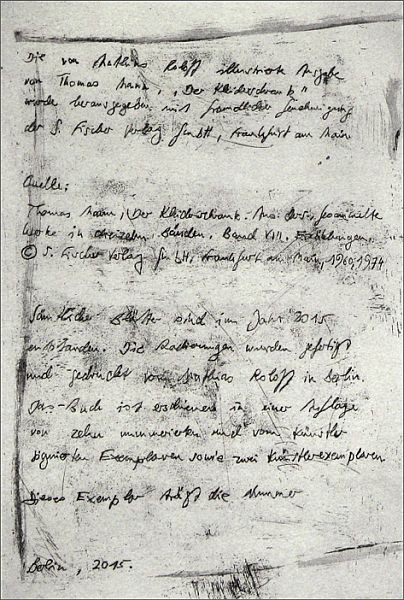 Die von Mathias Roloff illustrierte Ausgabe
von Thomas Mann, „Der Kleiderschrank"
wurde herausgegeben mit freundlicher Genehmigung
der S. Fischer Verlag GmbH, Frankfurt am Main
Quelle:
Thomas Mann, Der Kleiderschrank. Aus ders., Gesammelte
Werke in dreizehn Bänden, Band VIII. Erzählungen.
© S. Fischer Verlag GmbH, Frankfurt am Main, 1960, 1974
Sämtliche Blätter sind im Jahr 2015
entstanden. Die Radierungen wurden gefertigt
und gedruckt von Matthias Roloff in Berlin.
Das Buch ist erschienen in einer Auflage
von zehn nummerierten und vom Künstler
signierten Exemplaren sowie zwei Künstlerexemplaren
Dieses Exemplar trägt die Nummer
Berlin, 2015.